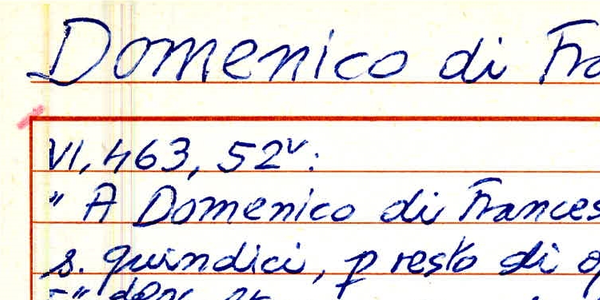 Domenico di Fra
VI, 463, 52v:
" A Domenico di Frances
s. quindici, p resto di